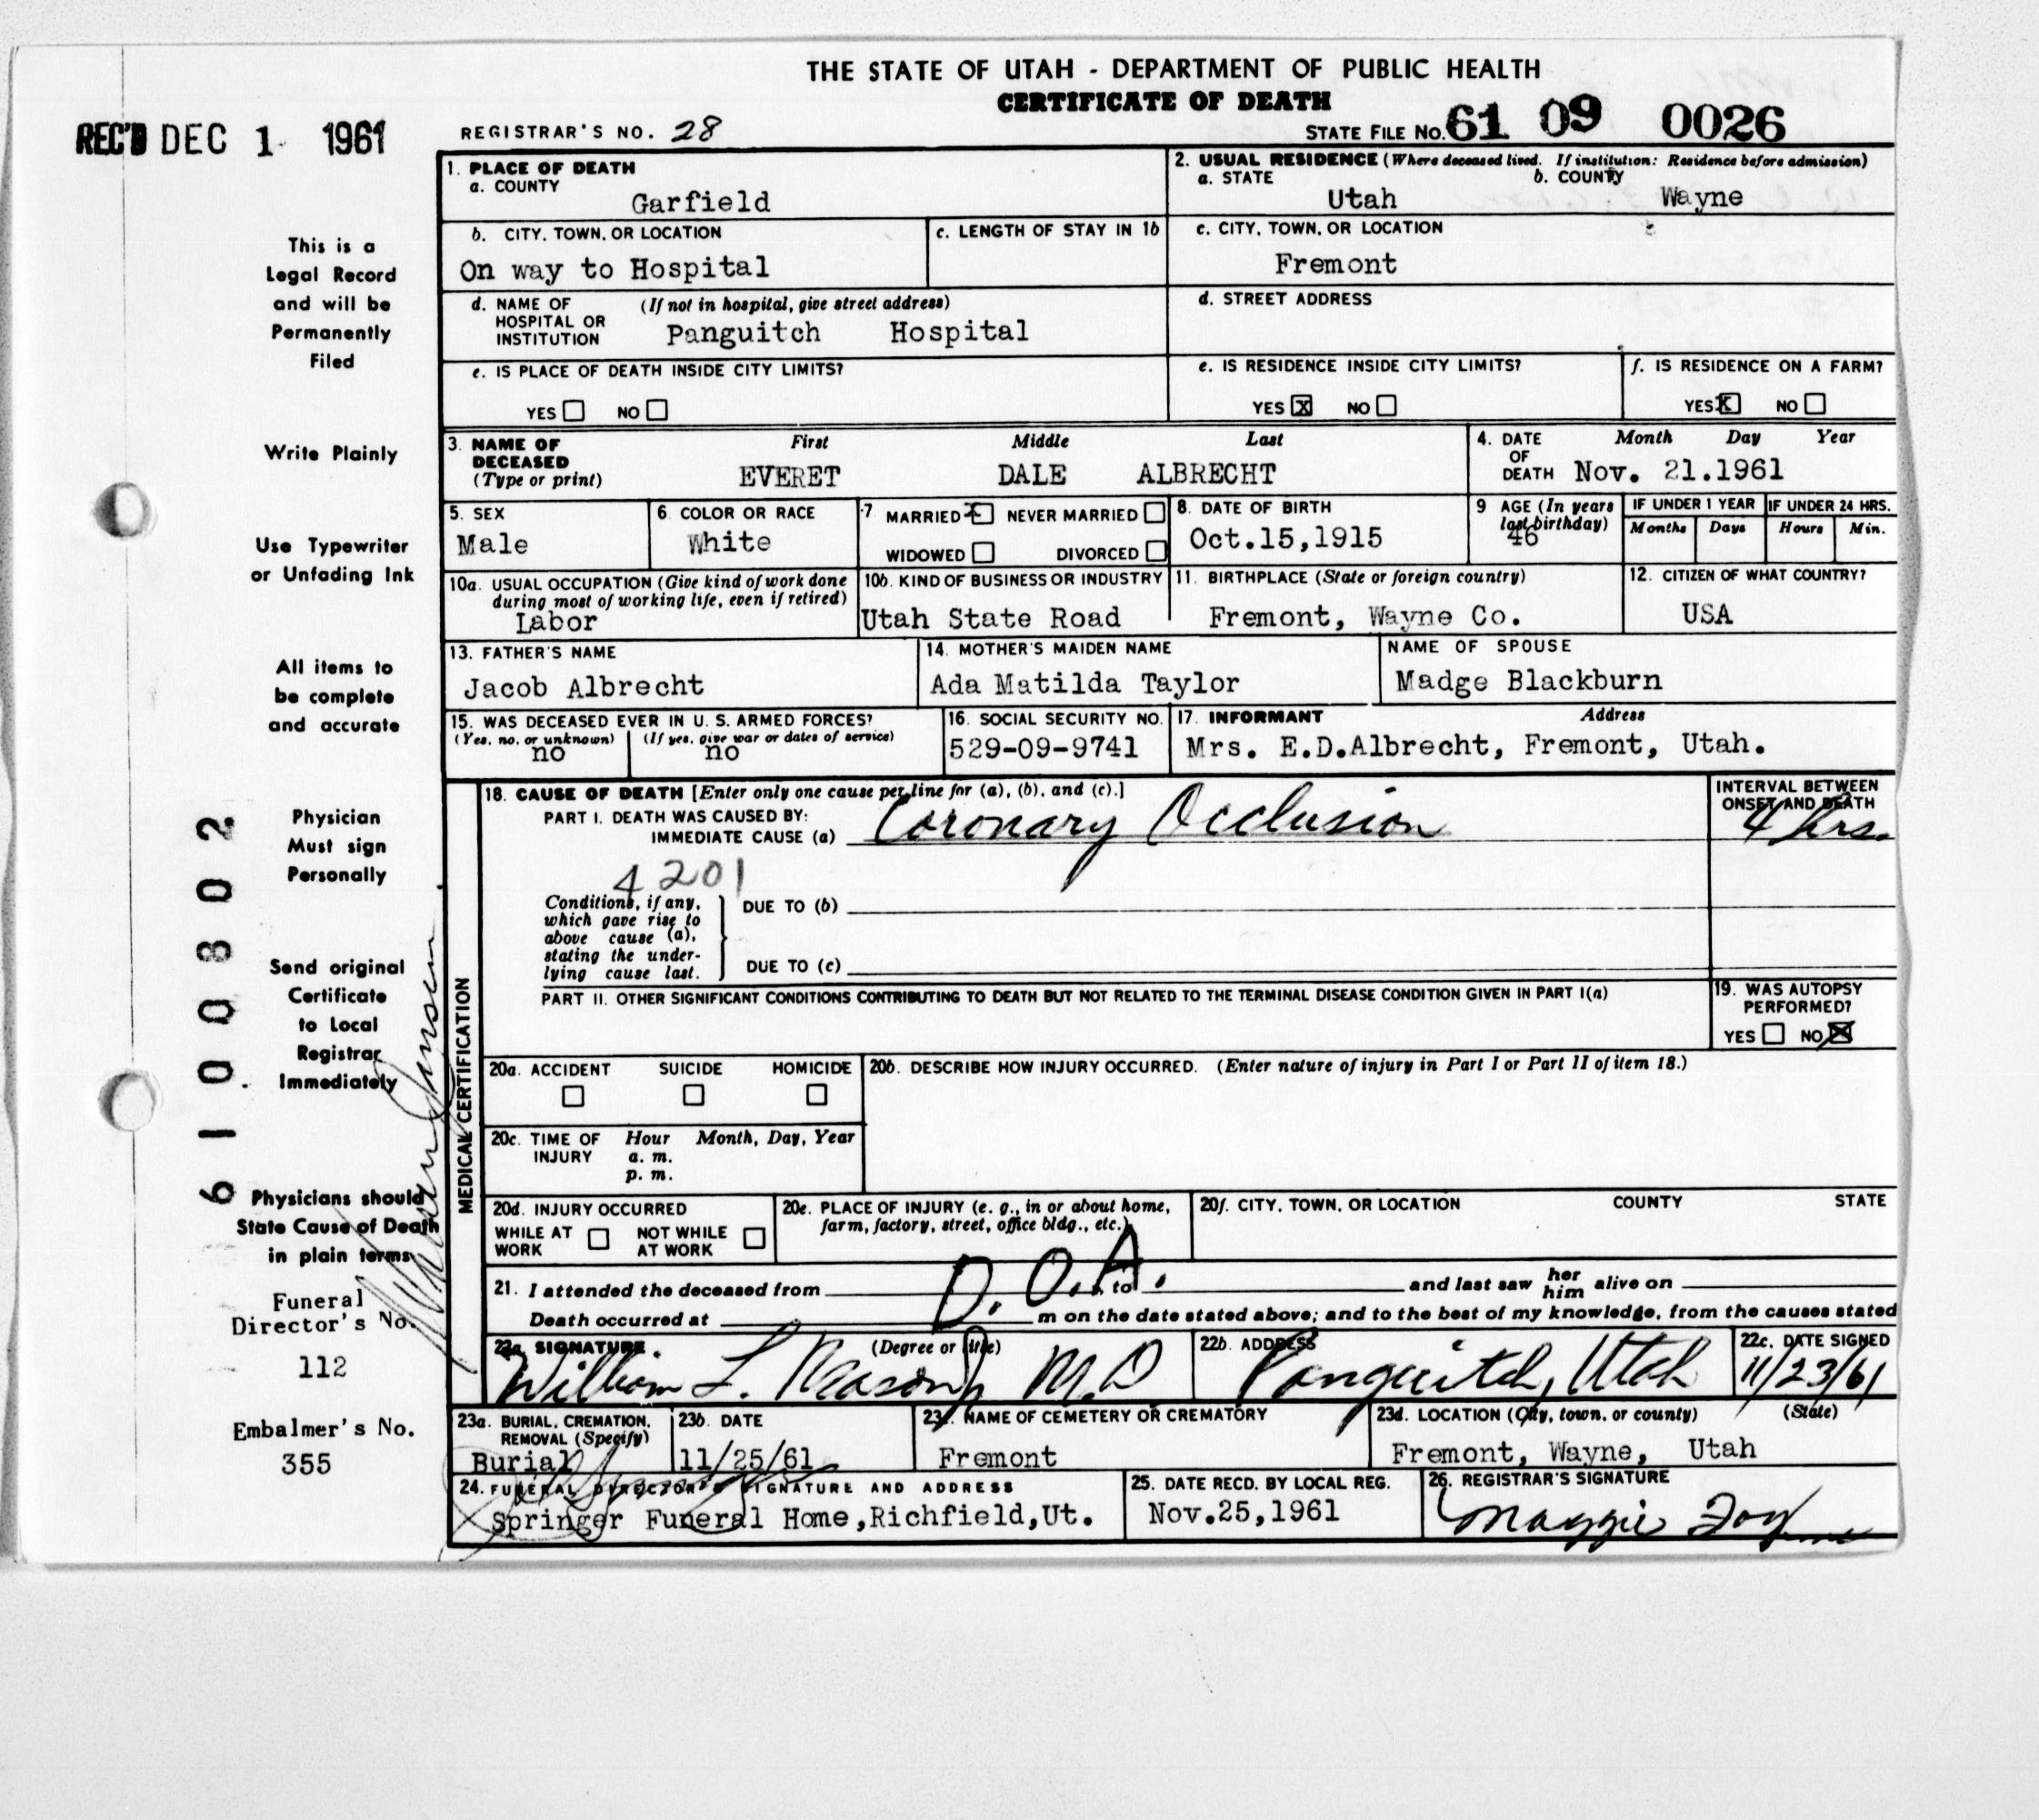 THE STATE OF UTAH - DEPARTMENT OF PUBLIC HEALTH
CERTIFICATE OF DEATH
REC'D DEC 1 1961
REGISTRAR'S NO. 28
STATE FILE NO. 61 09 0026
1. PLACE OF DEATH
a. COUNTY
Garfield
2. USUAL RESIDENCE (Where deceased lived. If institution: Residence before admission)
a. STATE
Utah
b. COUNTY
Wayne
b. CITY, TOWN, OR LOCATION
On way to Hospital
c. LENGTH OF STAY IN 1b
c. CITY, TOWN, OR LOCATION
Fremont
d. NAME OF HOSPITAL OR INSTITUTION
(If not in hospital, give street address)
Panguitch Hospital
d. STREET ADDRESS
e. IS PLACE OF DEATH INSIDE CITY LIMITS?
YES NO
e. IS RESIDENCE INSIDE CITY LIMITS?
YES X NO
f. IS RESIDENCE ON A FARM?
YES X NO
3. NAME OF DECEASED
(Type or print)
First Middle Last
EVERET DALE ALBRECHT
4. DATE OF DEATH
Month Day Year
Nov. 21.1961
5. SEX
Male
6. COLOR OR RACE
White
7 MARRIED X NEVER MARRIED
WIDOWED DIVORCED
8. DATE OF BIRTH
Oct.15,1915
9 AGE (In years last birthday)
46
IF UNDER 1 YEAR
Months Days
IF UNDER 24 HRS.
Hours Min.
10a. USUAL OCCUPATION (Give kind of work done
during most of working life, even if retired)
Labor
10b. KIND OF BUSINESS OR INDUSTRY
Utah State Road
11. BIRTHPLACE (State or foreign country)
Fremont, Wayne Co.
12. CITIZEN OF WHAT COUNTRY?
USA
13. FATHER'S NAME
Jacob Albrecht
14. MOTHER'S MAIDEN NAME
Ada Matilda Taylor
NAME OF SPOUSE
Madge Blackburn
15. WAS DECEASED EVER IN U. S. ARMED FORCES?
(Yes, no, or unknown) (If yes, give war or dates of service)
no no
16. SOCIAL SECURITY NO.
529-09-9741
17. INFORMANT Address
Mrs. E.D.Albrecht, Fremont, Utah.
MEDICAL CERTIFICATION
18. CAUSE OF DEATH [Enter only one cause per line for (a), (b), and (c).]
PART I. DEATH WAS CAUSED BY:
IMMEDIATE CAUSE (a) Coronary Occlusion
INTERVAL BETWEEN
ONSET AND DEATH
4 hrs.
4201
Conditions, if any,
which gave rise to
above cause (a),
stating the under-
lying cause last.
DUE TO (b)
DUE TO (c)
PART II. OTHER SIGNIFICANT CONDITIONS CONTRIBUTING TO DEATH BUT NOT RELATED TO THE TERMINAL DISEASE CONDITION GIVEN IN PART I(a)
19. WAS AUTOPSY
PERFORMED?
YES NO X
20a. ACCIDENT SUICIDE HOMICIDE
20b. DESCRIBE HOW INJURY OCCURRED. (Enter nature of injury in Part I or Part II of item 18.)
20c. TIME OF INJURY
Hour Month, Day, Year
a. m.
p. m.
20d. INJURY OCCURRED
WHILE AT WORK NOT WHILE AT WORK
20e. PLACE OF INJURY (e. g., in or about home,
farm, factory, street, office bldg., etc.)
20f. CITY, TOWN, OR LOCATION COUNTY STATE
21. I attended the deceased from D. O. A. to and last saw her him alive on
Death occurred at m on the date stated above; and to the best of my knowledge, from the causes stated
22a. SIGNATURE (Degree or title)
William L. M.D
22b. ADDRESS
Panguitch, Utah
22c. DATE SIGNED
11/23/61
23a. BURIAL, CREMATION,
REMOVAL (Specify)
Burial
23b. DATE
11/25/61
23c. NAME OF CEMETERY OR CREMATORY
Fremont
23d. LOCATION (City, town, or county) (State)
Fremont, Wayne, Utah
24. FUNERAL DIRECTOR'S SIGNATURE AND ADDRESS
Springer Funeral Home,Richfield,Ut.
25. DATE RECD. BY LOCAL REG.
Nov.25,1961
26. REGISTRAR'S SIGNATURE
Maggie
This is a
Legal Record
and will be
Permanently
Filed
Write Plainly
Use Typewriter
or Unfading Ink
All items to
be complete
and accurate
Physician
Must sign
Personally
Send original
Certificate
to Local
Registrar
Immediately
Physicians should
State Cause of Death
in plain terms
Funeral
Director's No.
112
Embalmer's No.
355
6100802